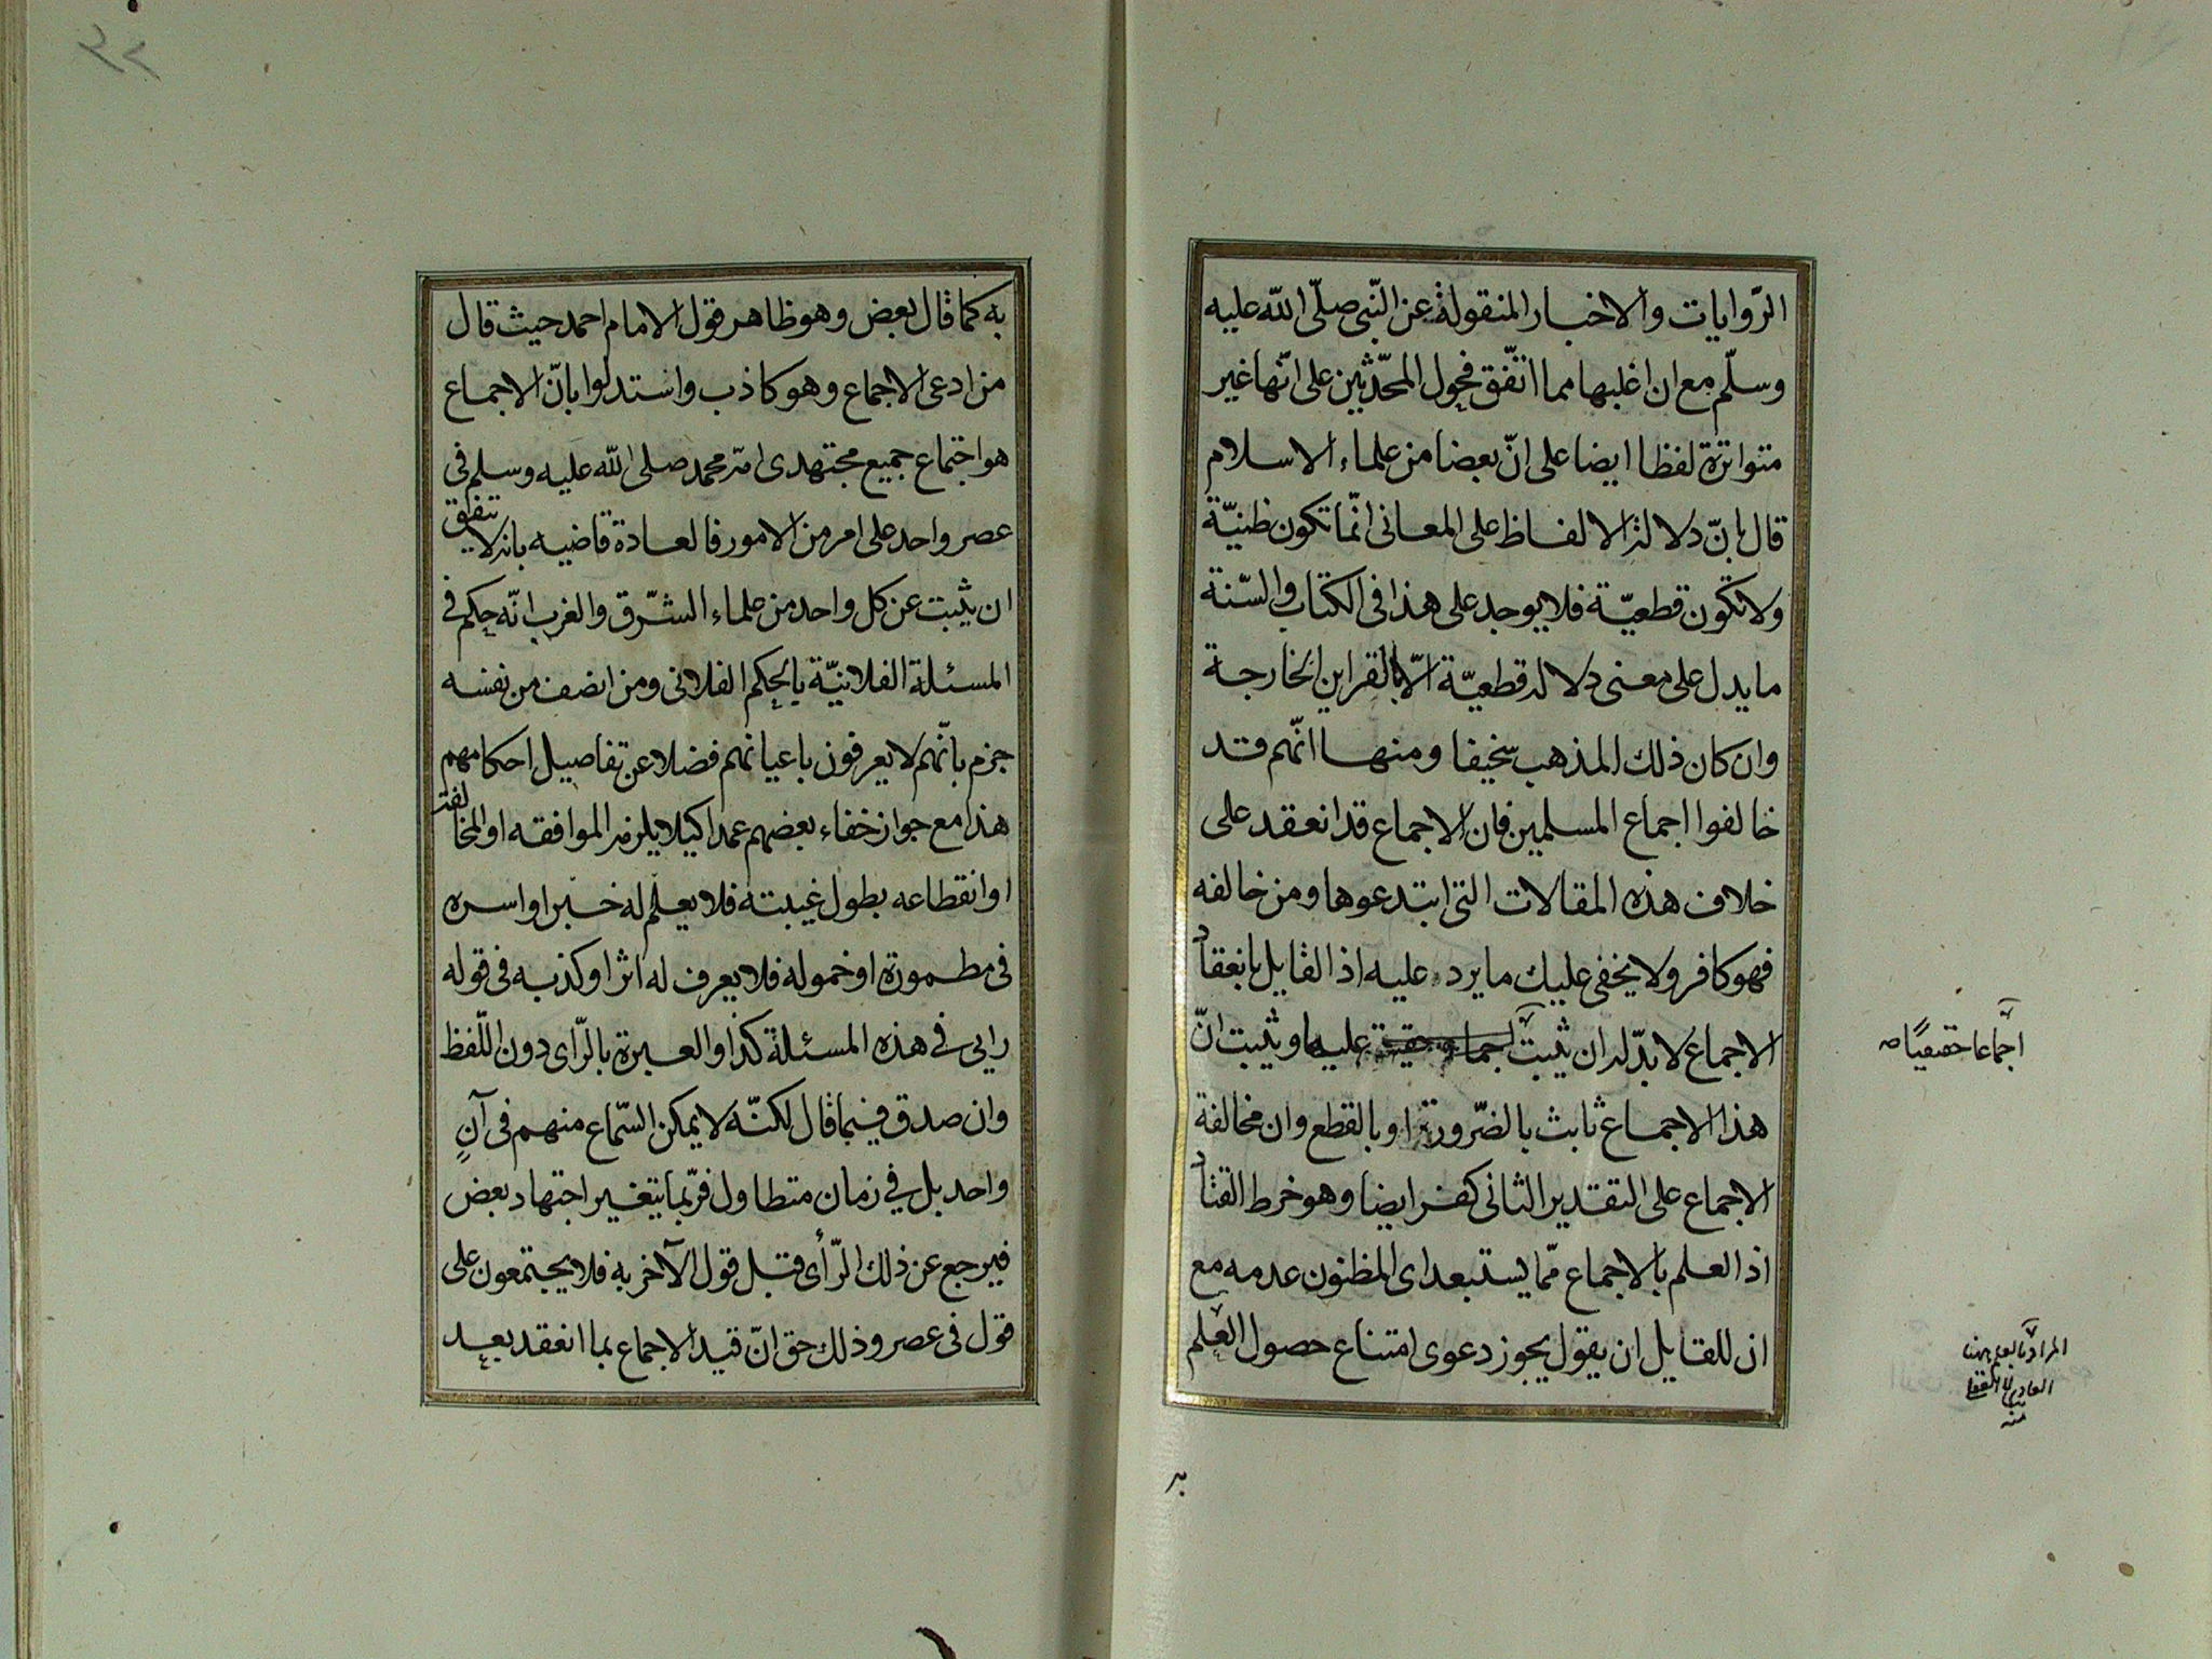 الرّوايات والاخبار المنقولة عن النّبى صلّى اللّه عليه
وسلّم مع ان اغلبها مما اتفّق فحول المحدّثين على انّها غير
متواترة لفظا ايضا على انّ بعضا من علماء الاسلام
قال بانّ دلالة الالفاظ على المعانى انّما تكون ظنيّة
ولا تكون قطعيّة فلا يوجد على هذا فى الكتاب والسّنة
ما يدل على معنى دلالة قطعيّة الّا بالقراين الخارجة
وان كان ذلك المذهب سخيفا ومنها انّهم قد
خالفوا اجماع المسلمين فان الاجماع قد انعقد على
خلاف هذه المقالات التى ابتدعوها ومن خالفه
فهو كافر ولا يخفى عليك ما يرد عليه اذ القايل بانعقاد
الاجماع لا بدّ له ان يثبت عليها ويثبت انّ
اجماعا حقيقيّا صح
هذا الاجماع ثابت بالضّرورة او بالقطع وان مخالفة
الاجماع على التقدير الثانى كفر ايضا وهو خرط القتاد
اذ العلم بالاجماع ممّا يستبعد اى المظنون عدمه مع
ان للقايل ان يقول يجوز دعوى امتناع حصول العلم
المراد بالعلم ههنا
العادى لا العقلى
منه
به
٢٢
به كما قال بعض وهو ظاهر قول الامام احمد حيث قال
من ادعى الاجماع وهو كاذب واستدلوا بانّ الاجماع
هو اجتماع جميع مجتهدى امة محمد صلى اللّه عليه وسلم فى
عصر واحد على امر من الامور فالعادة قاضيه بانه لا يتفق
ان يثبت عن كل واحد من علماء الشّرق والغرب انّه حكم فى
المسئلة الفلانيّة بالحكم الفلانى ومن انصف من نفسه
جزم بانّهم لا يعرفون باعيانهم فضلا عن تفاصيل احكامهم
هذا مع جواز خفاء بعضهم عمدا كيلا يلزمه الموافقه او المخالفة
او انقطاعه بطول غيبته فلا يعلم له خبر او اسره
فى مطمورة او خموله فلا يعرف له اثر او كذبه فى قوله
رايى فى هذه المسئلة كذا والعبرة بالرّاى دون اللّفظ
وان صدق فيما قال لكنّه لا يمكن السّماع منهم فى آنٍ
واحد بل فى زمان متطاول فربّما يتغير اجتهاد بعض
فيرجع عن ذلك الرّأى قبل قول الآخر به فلا يجتمعون على
قول فى عصر وذلك حق انّ قيد الاجماع بما انعقد بعيد